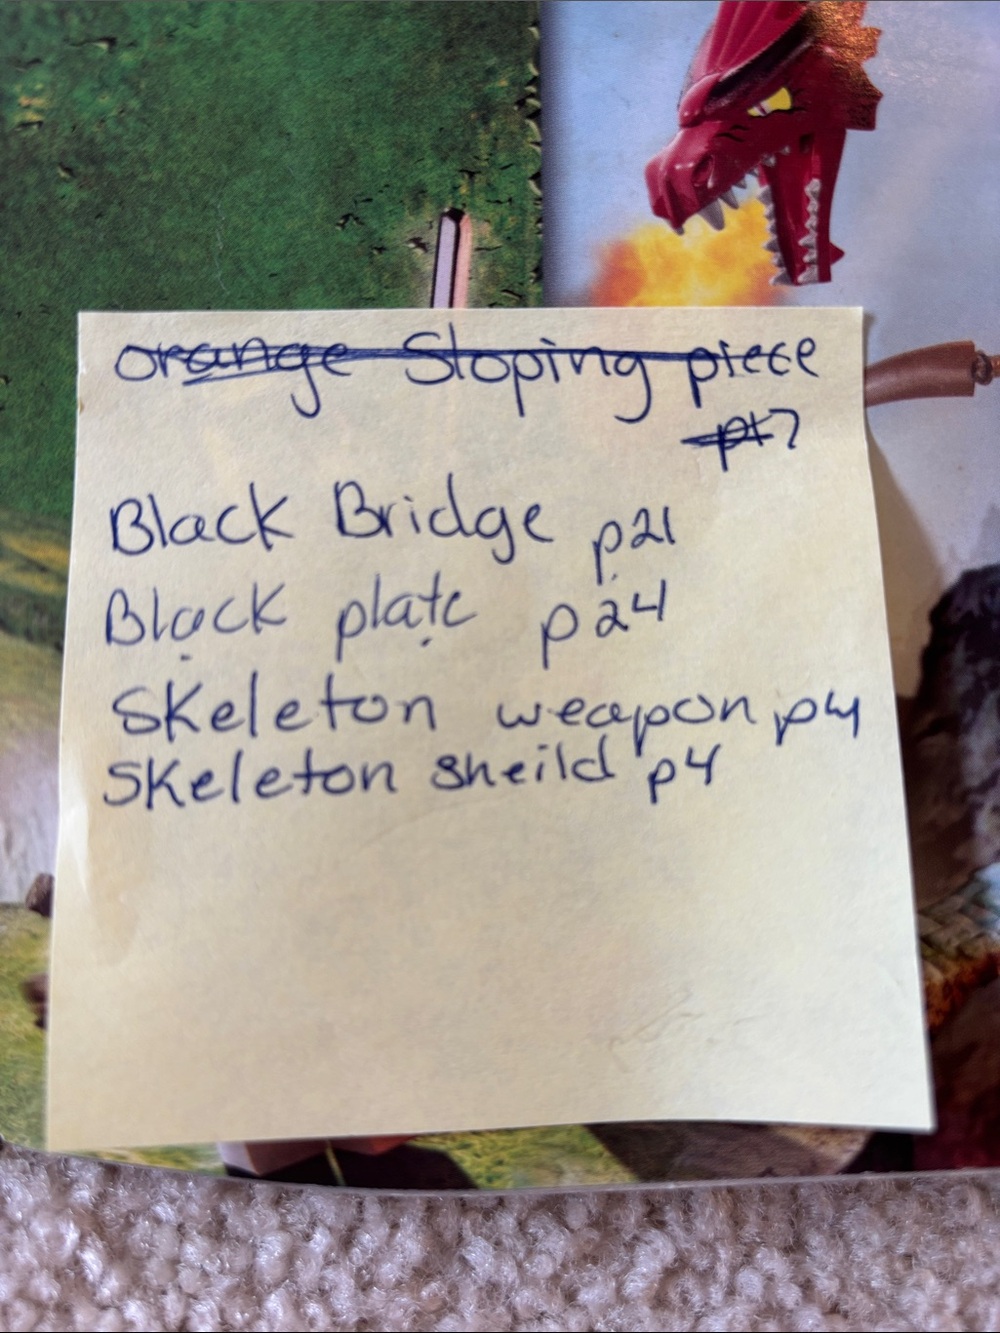 orange Sloping piece
p17
Black Bridge p21
Black plate p24
Skeleton weapon p4
Skeleton sheild p4